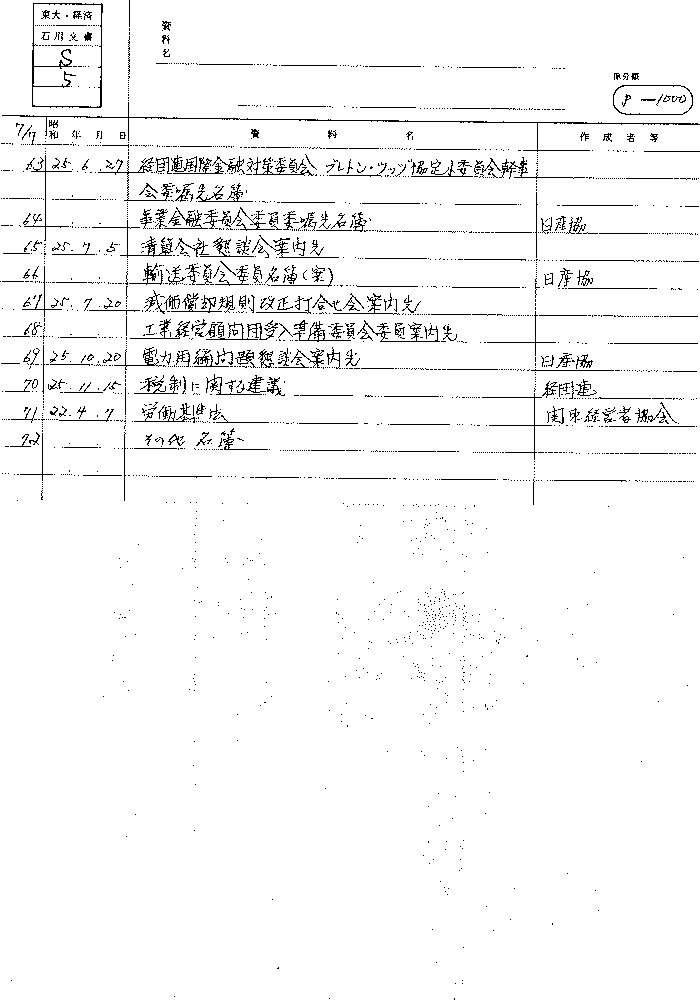 東大・経済
石川文書
S
5
資料名
原分類
P—1000
7/7 昭和 年 月 日 資 料 名 作 成 者 等
63 25. 6. 27 経団連国際金融対策委員会 ブレトン・ウッヅ協定小委員会幹事
会委嘱先名簿
64 . . 事業金融委員会委員委嘱先名簿 日産協
65 25. 7. 5 清算会社懇談会案内先
66 . . 輸送委員会委員名簿(案) 日産協
67 25. 7. 20 減価償却規則改正打合せ会案内先
68 . . 工業経営顧問団受入準備委員会委員案内先
69 25. 10. 20 電力再編問題懇談会案内先 日産協
70 25. 11. 15 税制に関する建議 経団連
71 22. 4. 7 労働基準法 関東経営者協会
72 . . その他 名簿